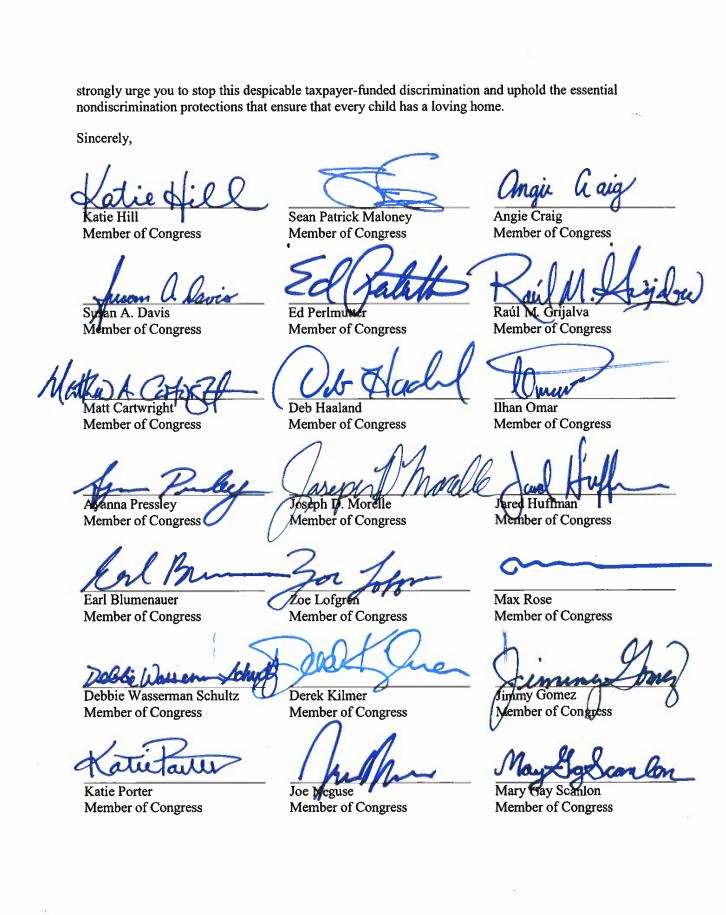 strongly urge you to stop this despicable taxpayer-funded discrimination and uphold the essential
nondiscrimination protections that ensure that every child has a loving home.
Sincerely,
Katie Hill
Katie Hill
Member of Congress
Sean Patrick Maloney
Member of Congress
Angie Craig
Angie Craig
Member of Congress
Susan A. Davis
Susan A. Davis
Member of Congress
Ed Perlmutter
Member of Congress
Raúl M. Grijalva
Raúl M. Grijalva
Member of Congress
Matt Cartwright
Member of Congress
Deb Haaland
Deb Haaland
Member of Congress
Omar
Ilhan Omar
Member of Congress
Ayanna Pressley
Member of Congress
Joseph D. Morelle
Joseph D. Morelle
Member of Congress
Jared Huffman
Member of Congress
Earl Blumenauer
Member of Congress
Zoe Lofgren
Zoe Lofgren
Member of Congress
Max Rose
Member of Congress
Debbie Wasserman Schultz
Debbie Wasserman Schultz
Member of Congress
Derek Kilmer
Derek Kilmer
Member of Congress
Jimmy Gomez
Jimmy Gomez
Member of Congress
Katie Porter
Katie Porter
Member of Congress
Joe Neguse
Member of Congress
Mary Gay Scanlon
Mary Gay Scanlon
Member of Congress